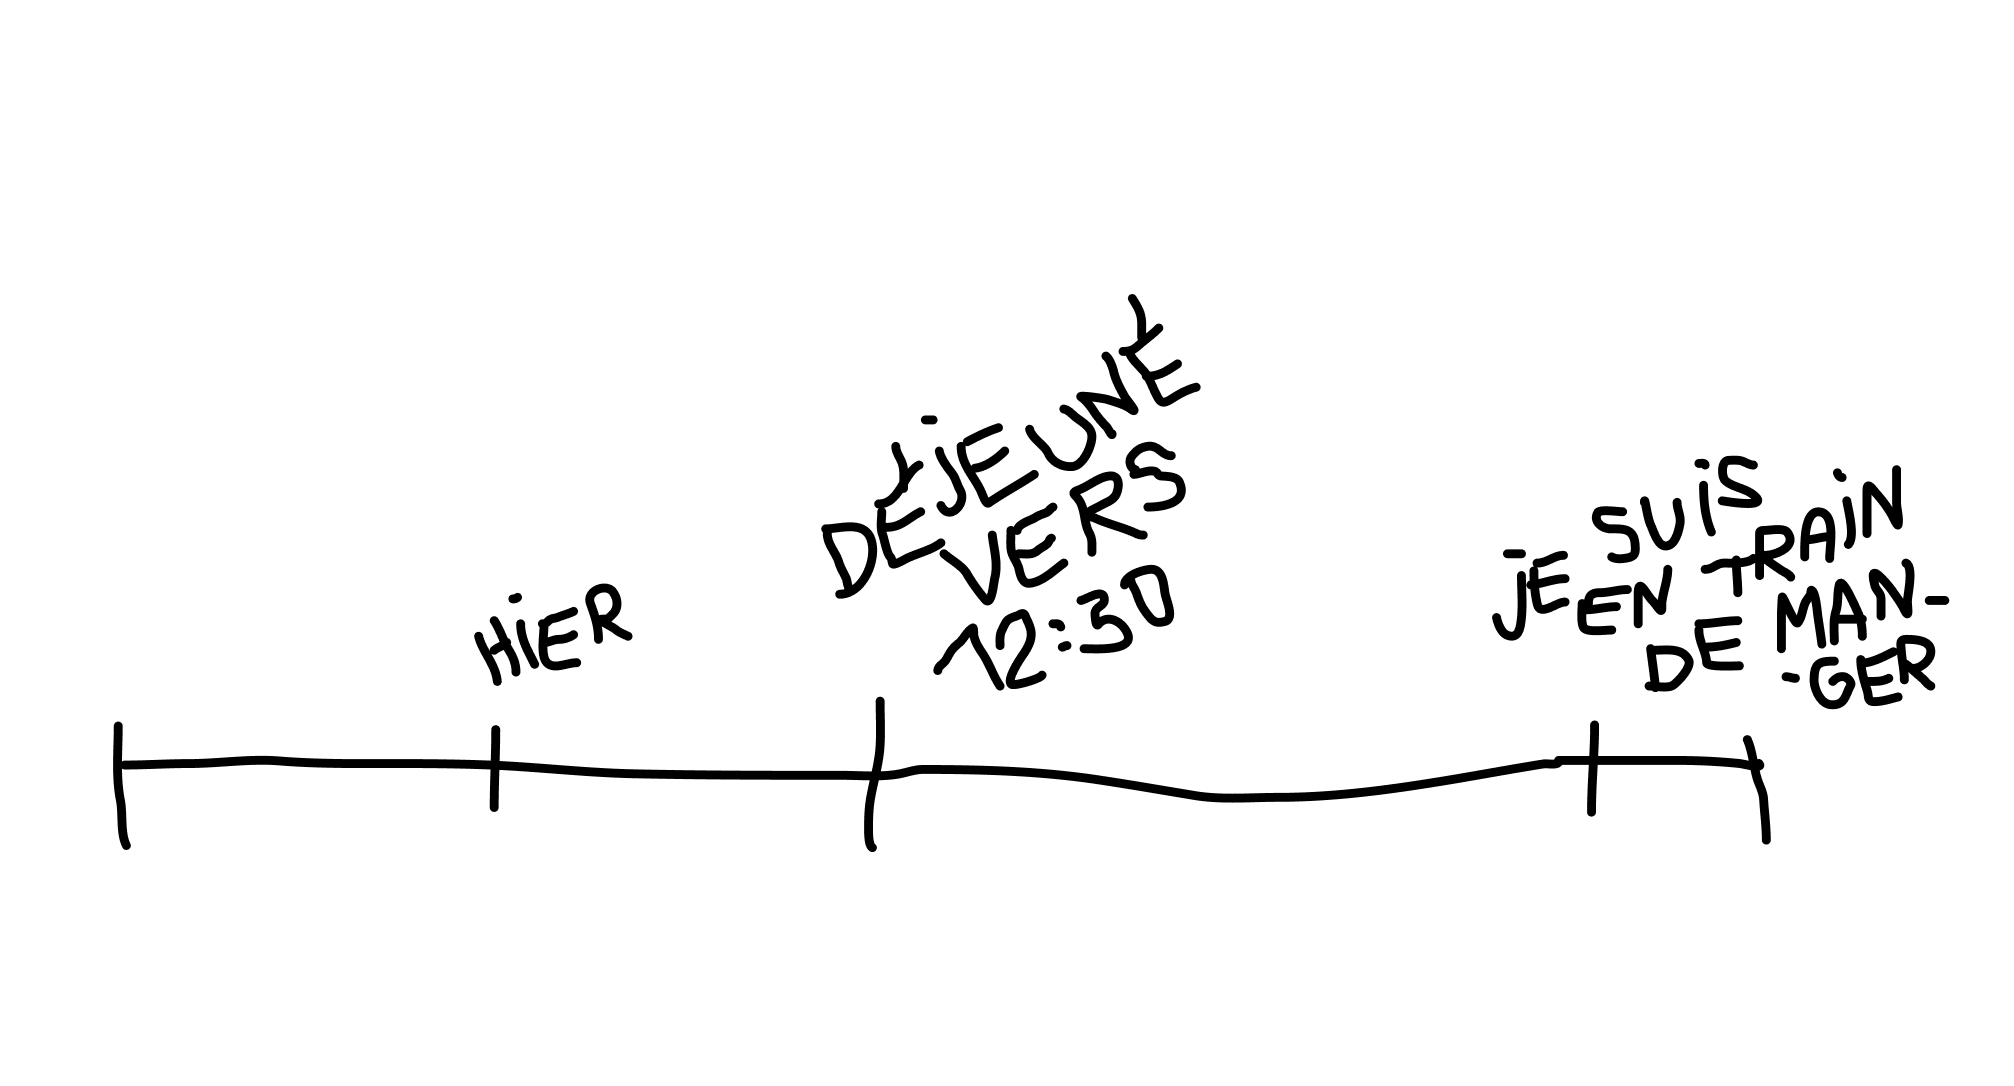 HiER
DÉJEUNÉ
VERS
12:30
JE SUiS
EN TRAiN
DE MAN-
-GER